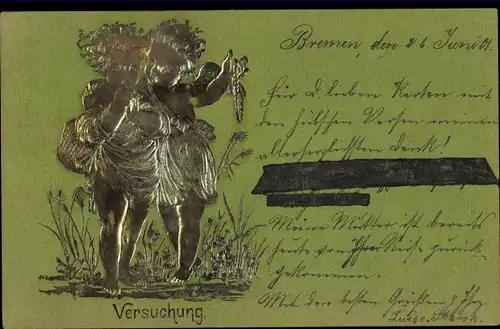 Bremen, den 26. Juni 01.
Für D. lieben Karten mit
den hübschen Versen meinen
allerherzlichsten Dank!
Meine Mutter ist bereits
heute von Reise zurück-
gekommen.
Mit den besten Grüßen
Versuchung.